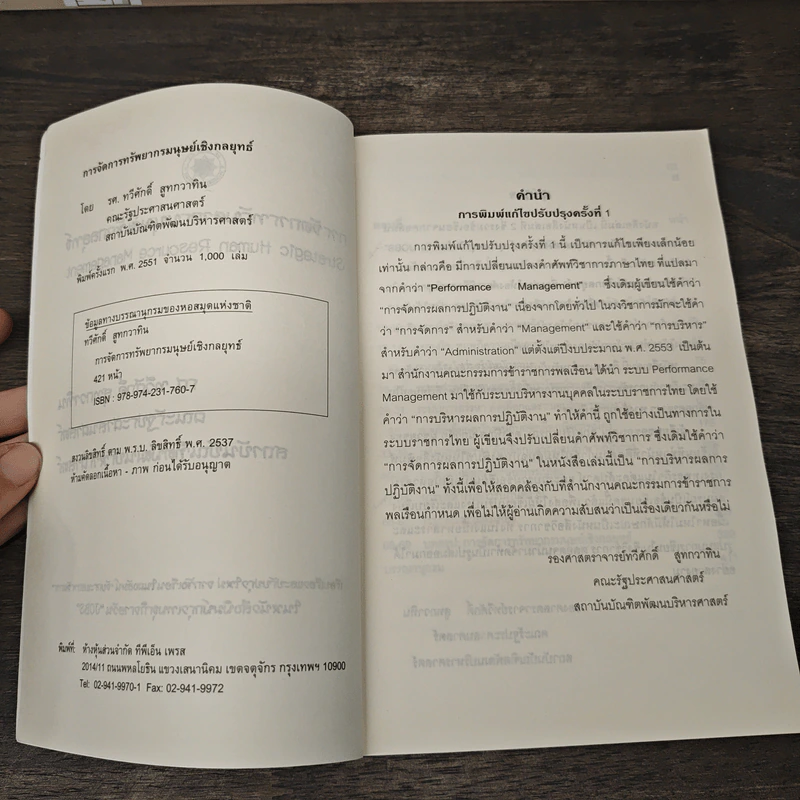 การจัดการทรัพยากรมนุษย์เชิงกลยุทธ์
โดย รศ. ทวีศักดิ์ สูทกวาทิน
คณะรัฐประศาสนศาสตร์
สถาบันบัณฑิตพัฒนบริหารศาสตร์
พิมพ์ครั้งแรก พ.ศ. 2551 จำนวน 1,000 เล่ม
ข้อมูลทางบรรณานุกรมของหอสมุดแห่งชาติ
ทวีศักดิ์ สูทกวาทิน
การจัดการทรัพยากรมนุษย์เชิงกลยุทธ์
421 หน้า
ISBN : 978-974-231-760-7
สงวนลิขสิทธิ์ ตาม พ.ร.บ. ลิขสิทธิ์ พ.ศ. 2537
ห้ามคัดลอกเนื้อหา - ภาพ ก่อนได้รับอนุญาต
พิมพ์ที่ ห้างหุ้นส่วนจำกัด ทีพีเอ็น เพรส
2014/11 ถนนพหลโยธิน แขวงเสนานิคม เขตจตุจักร กรุงเทพฯ 10900
Tel: 02-941-9970-1 Fax: 02-941-9972
คำนำ
การพิมพ์แก้ไขปรับปรุงครั้งที่ 1
การพิมพ์แก้ไขปรับปรุงครั้งที่ 1 นี้ เป็นการแก้ไขเพียงเล็กน้อย
เท่านั้น กล่าวคือ มีการเปลี่ยนแปลงคำศัพท์วิชาการภาษาไทย ที่แปลมา
จากคำว่า “Performance Management” ซึ่งเดิมผู้เขียนใช้คำว่า
“การจัดการผลการปฏิบัติงาน” เนื่องจากโดยทั่วไป ในวงวิชาการมักจะใช้คำ
ว่า “การจัดการ” สำหรับคำว่า “Management” และใช้คำว่า “การบริหาร”
สำหรับคำว่า “Administration” แต่ตั้งแต่ปีงบประมาณ พ.ศ. 2553 เป็นต้น
มา สำนักงานคณะกรรมการข้าราชการพลเรือน ได้นำ ระบบ Performance
Management มาใช้กับระบบบริหารงานบุคคลในระบบราชการไทย โดยใช้
คำว่า “การบริหารผลการปฏิบัติงาน” ทำให้คำนี้ ถูกใช้อย่างเป็นทางการใน
ระบบราชการไทย ผู้เขียนจึงปรับเปลี่ยนคำศัพท์วิชาการ ซึ่งเดิมใช้คำว่า
“การจัดการผลการปฏิบัติงาน” ในหนังสือเล่มนี้เป็น “การบริหารผลการ
ปฏิบัติงาน” ทั้งนี้เพื่อให้สอดคล้องกับที่สำนักงานคณะกรรมการข้าราชการ
พลเรือนกำหนด เพื่อไม่ให้ผู้อ่านเกิดความสับสนว่าเป็นเรื่องเดียวกันหรือไม่
รองศาสตราจารย์ทวีศักดิ์ สูทกวาทิน
คณะรัฐประศาสนศาสตร์
สถาบันบัณฑิตพัฒนบริหารศาสตร์